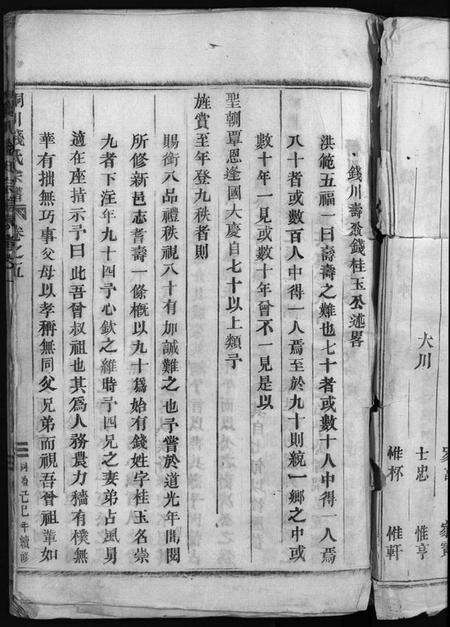 錢川壽叅錢桂玉公述畧
洪範五福一曰壽壽之難也七十者或數十人中得一人焉
八十者或數百人中得一人焉至於九十則統一鄉之中或
數十年一見或數十年曾不一見是以
聖朝覃恩逢國大慶自七十以上類予
旌賞至年登九秩者則
賜銜八品禮秩視八十有加誠難之也予嘗於道光年間閱
所修新邑志耆壽一條概以九十爲始有錢姓字桂玉名崇
九者下注年九十四予心欽之維時予四兄之妻弟占風舅
適在座指示予曰此吾曾叔祖也其爲人務農力穡有樸無
華有拙無巧事父母以孝稱無同父兄弟而視吾曾祖輩如
桐川錢氏宗譜
卷之五
同治己巳年續修
大川
士忠
惟亨
惟杯
惟軒